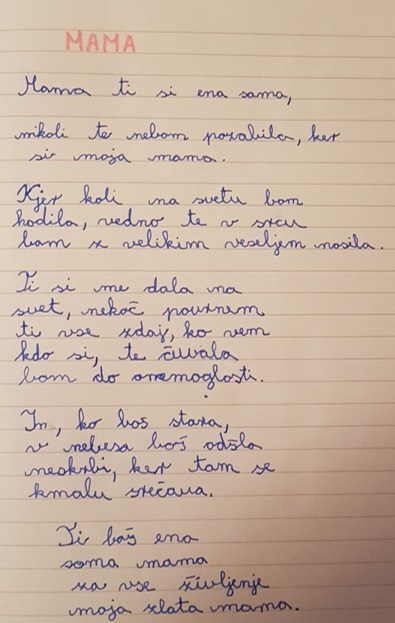 MAMA
Mama ti si ena sama,
nikoli te nebom pozabila, ker
si moja mama.
Kjer koli na svetu bom
hodila, vedno te v srcu
bom z velikim veseljem nosila.
Ti si me dala na
svet, nekoč povrnem
ti vse zdaj, ko vem
kdo si, te čuvala
bom do onemoglosti.
In, ko boš stara,
v nebesa boš odšla
neskrbi, ker tam se
kmalu srečava.
Ti boš ena
sama mama
za vse življenje
moja zlata mama.